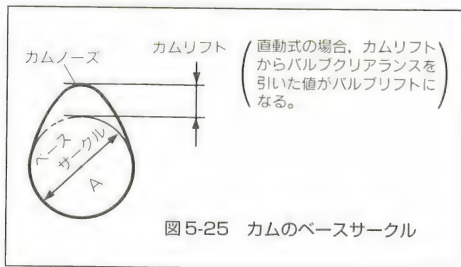 カムノーズ
カムリフト
直動式の場合，カムリフト
からバルブクリアランスを
引いた値がバルブリフトに
なる。
ベース
サークル
A
図5-25 カムのベースサークル